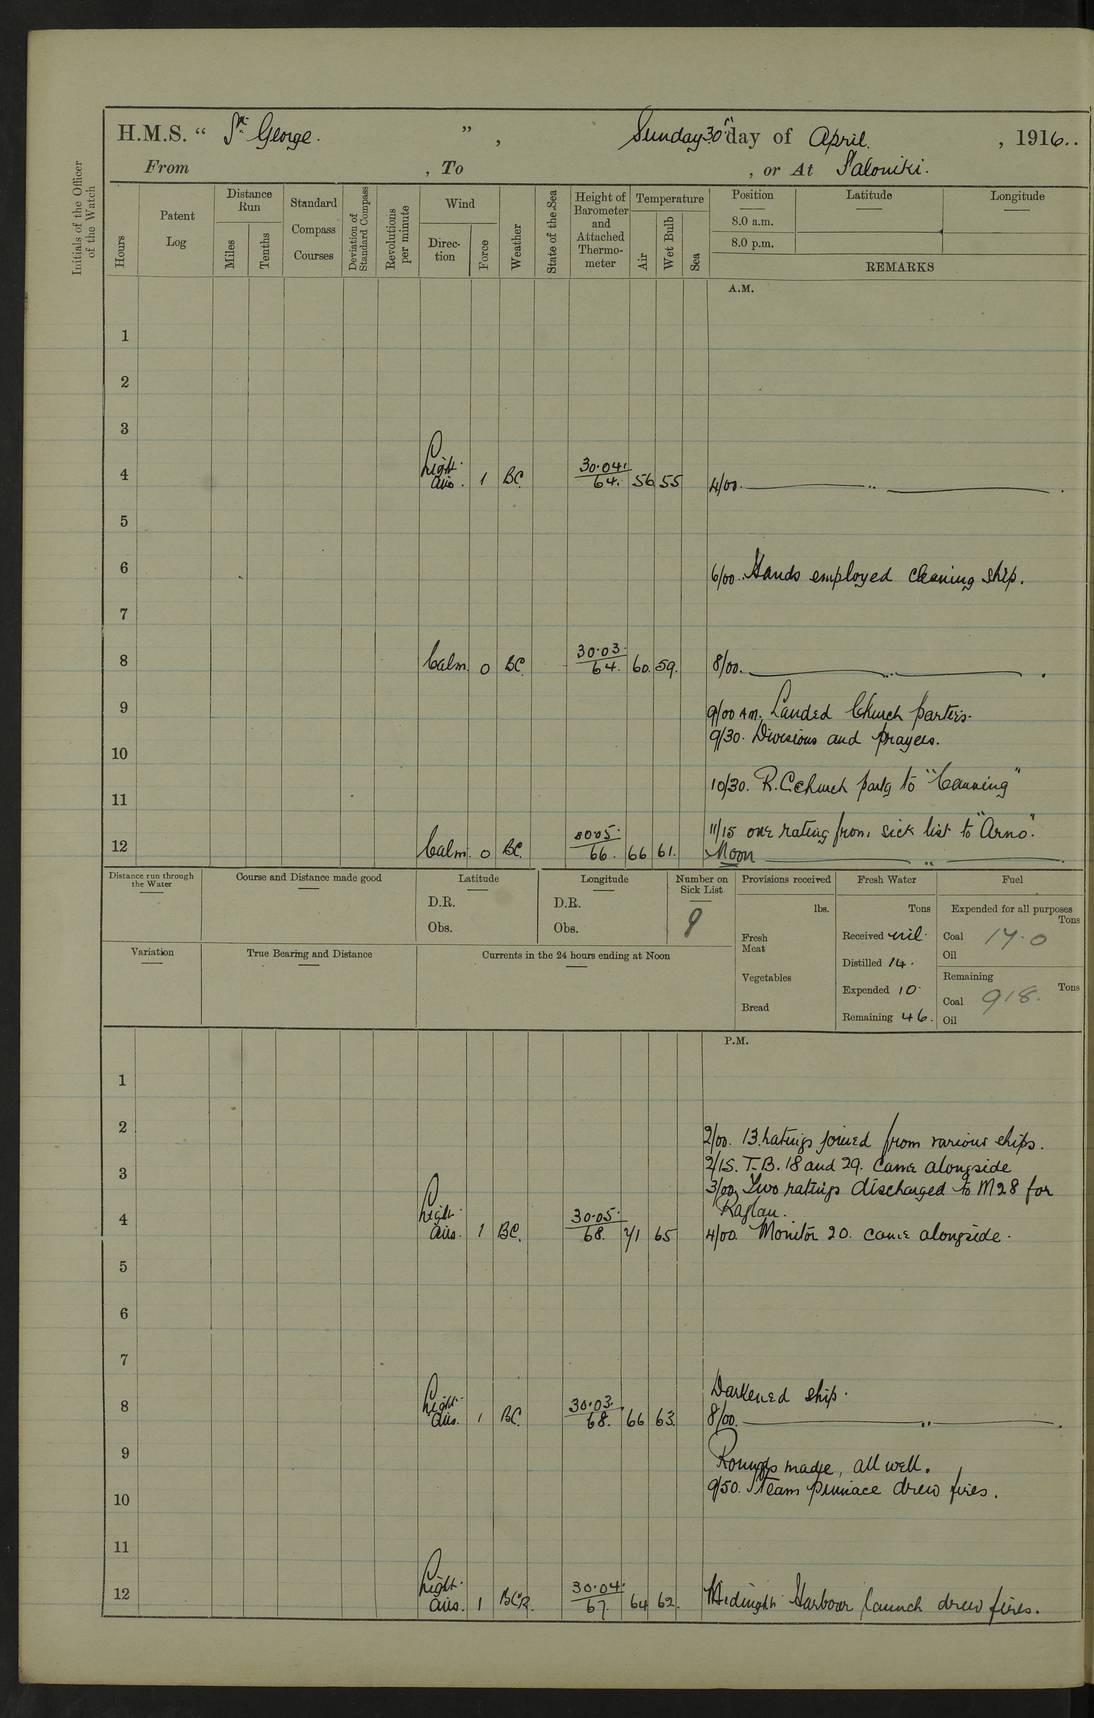 H.M.S. “ St George. ” , Sunday 30th day of April. , 1916..
From , To , or At Saloniki.
Initials of the Officer of the Watch
Hours
Patent Log
Distance Run
Miles
Tenths
Standard Compass Courses
Deviation of Standard Compass
Revolutions per minute
Wind
Direction
Force
Weather
State of the Sea
Height of Barometer and Attached Thermometer
Temperature
Air
Wet Bulb
Sea
Position Latitude Longitude
8.0 a.m.
8.0 p.m.
REMARKS
A.M.
1
2
3
4 Light airs. 1 BC 30.04. 64. 56 55 4/00. ——— „ ——— .
5
6 6/00. Hands employed cleaning ship.
7
8 Calm. 0 BC. 30.03. 64. 60. 59. 8/00. ——— „ ——— .
9 9/00 AM. Landed Church parties.
9/30. Divisions and prayers.
10
10/30. R.C. Church party to "Canning"
11
11/15 one rating from sick list to "Arno".
12 Calm. 0 BC. 30.05. 66. 66 61. Noon ——— „ ——— .
Distance run through the Water
Course and Distance made good
Latitude
D.R.
Obs.
Longitude
D.R.
Obs.
Number on Sick List
9
Provisions received
lbs.
Fresh Meat
Vegetables
Bread
Fresh Water
Tons
Received nil.
Distilled 14.
Expended 10.
Remaining 46.
Fuel
Expended for all purposes
Tons
Coal 17.0
Oil
Remaining
Tons
Coal 918.
Oil
Variation
True Bearing and Distance
Currents in the 24 hours ending at Noon
P.M.
1
2 2/00. 13 ratings joined from various ships.
2/15. T.B. 18 and 29. came alongside
3 3/00. Two ratings discharged to M28 for
Raglan.
4 Light airs. 1 BC. 30.05. 68. 71 65 4/00. Monitor 20. came alongside.
5
6
7
Darkened ship.
8 Light airs. 1 BC. 30.03. 68. 66 63. 8/00. ——— „ ——— .
9 Rounds made, all well.
9/50. Steam pinnace drew fires.
10
11
12 Light airs. 1 BCR. 30.04. 67. 64 62. Midnight Harbour launch drew fires.